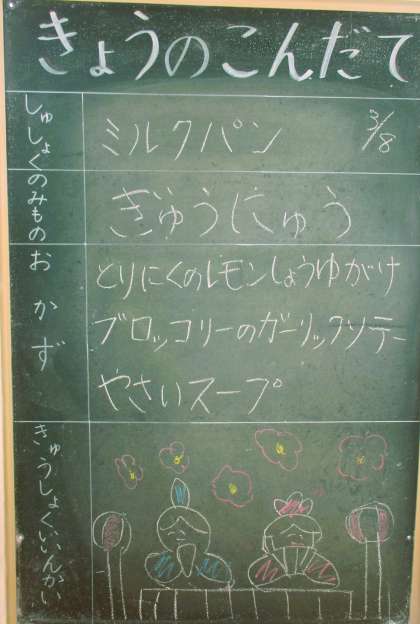 きょうのこんだて
しゅしょく
ミルクパン
3/8
のみもの
ぎゅうにゅう
おかず
とりにくのレモンしょうゆがけ
ブロッコリーのガーリックソテー
やさいスープ
きゅうしょくいいんかい